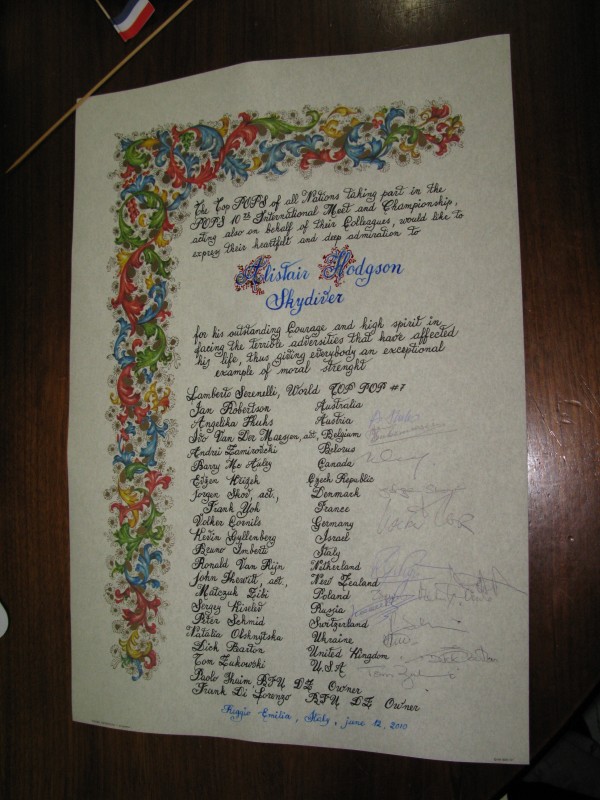 The Top POPS of all Nations taking part in the
POPS 10th International Meet and Championship,
acting also on behalf of their Colleagues, would like to
express their heartfelt and deep admiration to
Alistair Hodgson
Skydiver
for his outstanding Courage and high spirit in
facing the terrible adversities that have affected
his life, thus giving everybody an exceptional
example of moral strenght
Lamberto Serenelli, World TOP POP #7
Ian Robertson Australia
Angelika Fhuhs Austria
Ivo Van Der Maesen, act, Belgium
Andrei Zamirovski Belorus
Barry Mc Auley Canada
Evzen Krizek Czech Republic
Jorgen Skov, act., Denmark
Frank Yoh France
Volker Cornils Germany
Kevin Gyllenberg Israel
Bruno Imberti Italy
Ronald Van Rijn Netherland
John Thewitt, act., New Zealand
Matczuk Zibi Poland
Sergey Kiselev Russia
Peter Schmid Switzerland
Natalia Obshnytska Ukraine
Dick Barton United Kingdom
Tom Zukowski U.S.A
Paolo Iheim BFU DZ Owner
Frank Di Lorenzo BFU DZ Owner
Reggio Emilia, Italy, june 12, 2010